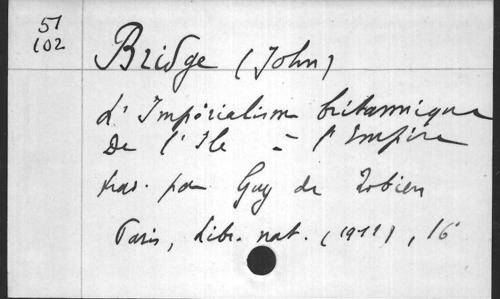 51
102
Bridge (John)
L'Impérialisme britannique
De l'Ile à l'Empire
trad. par Guy de
Paris, Libr. nat. (1911), 16°